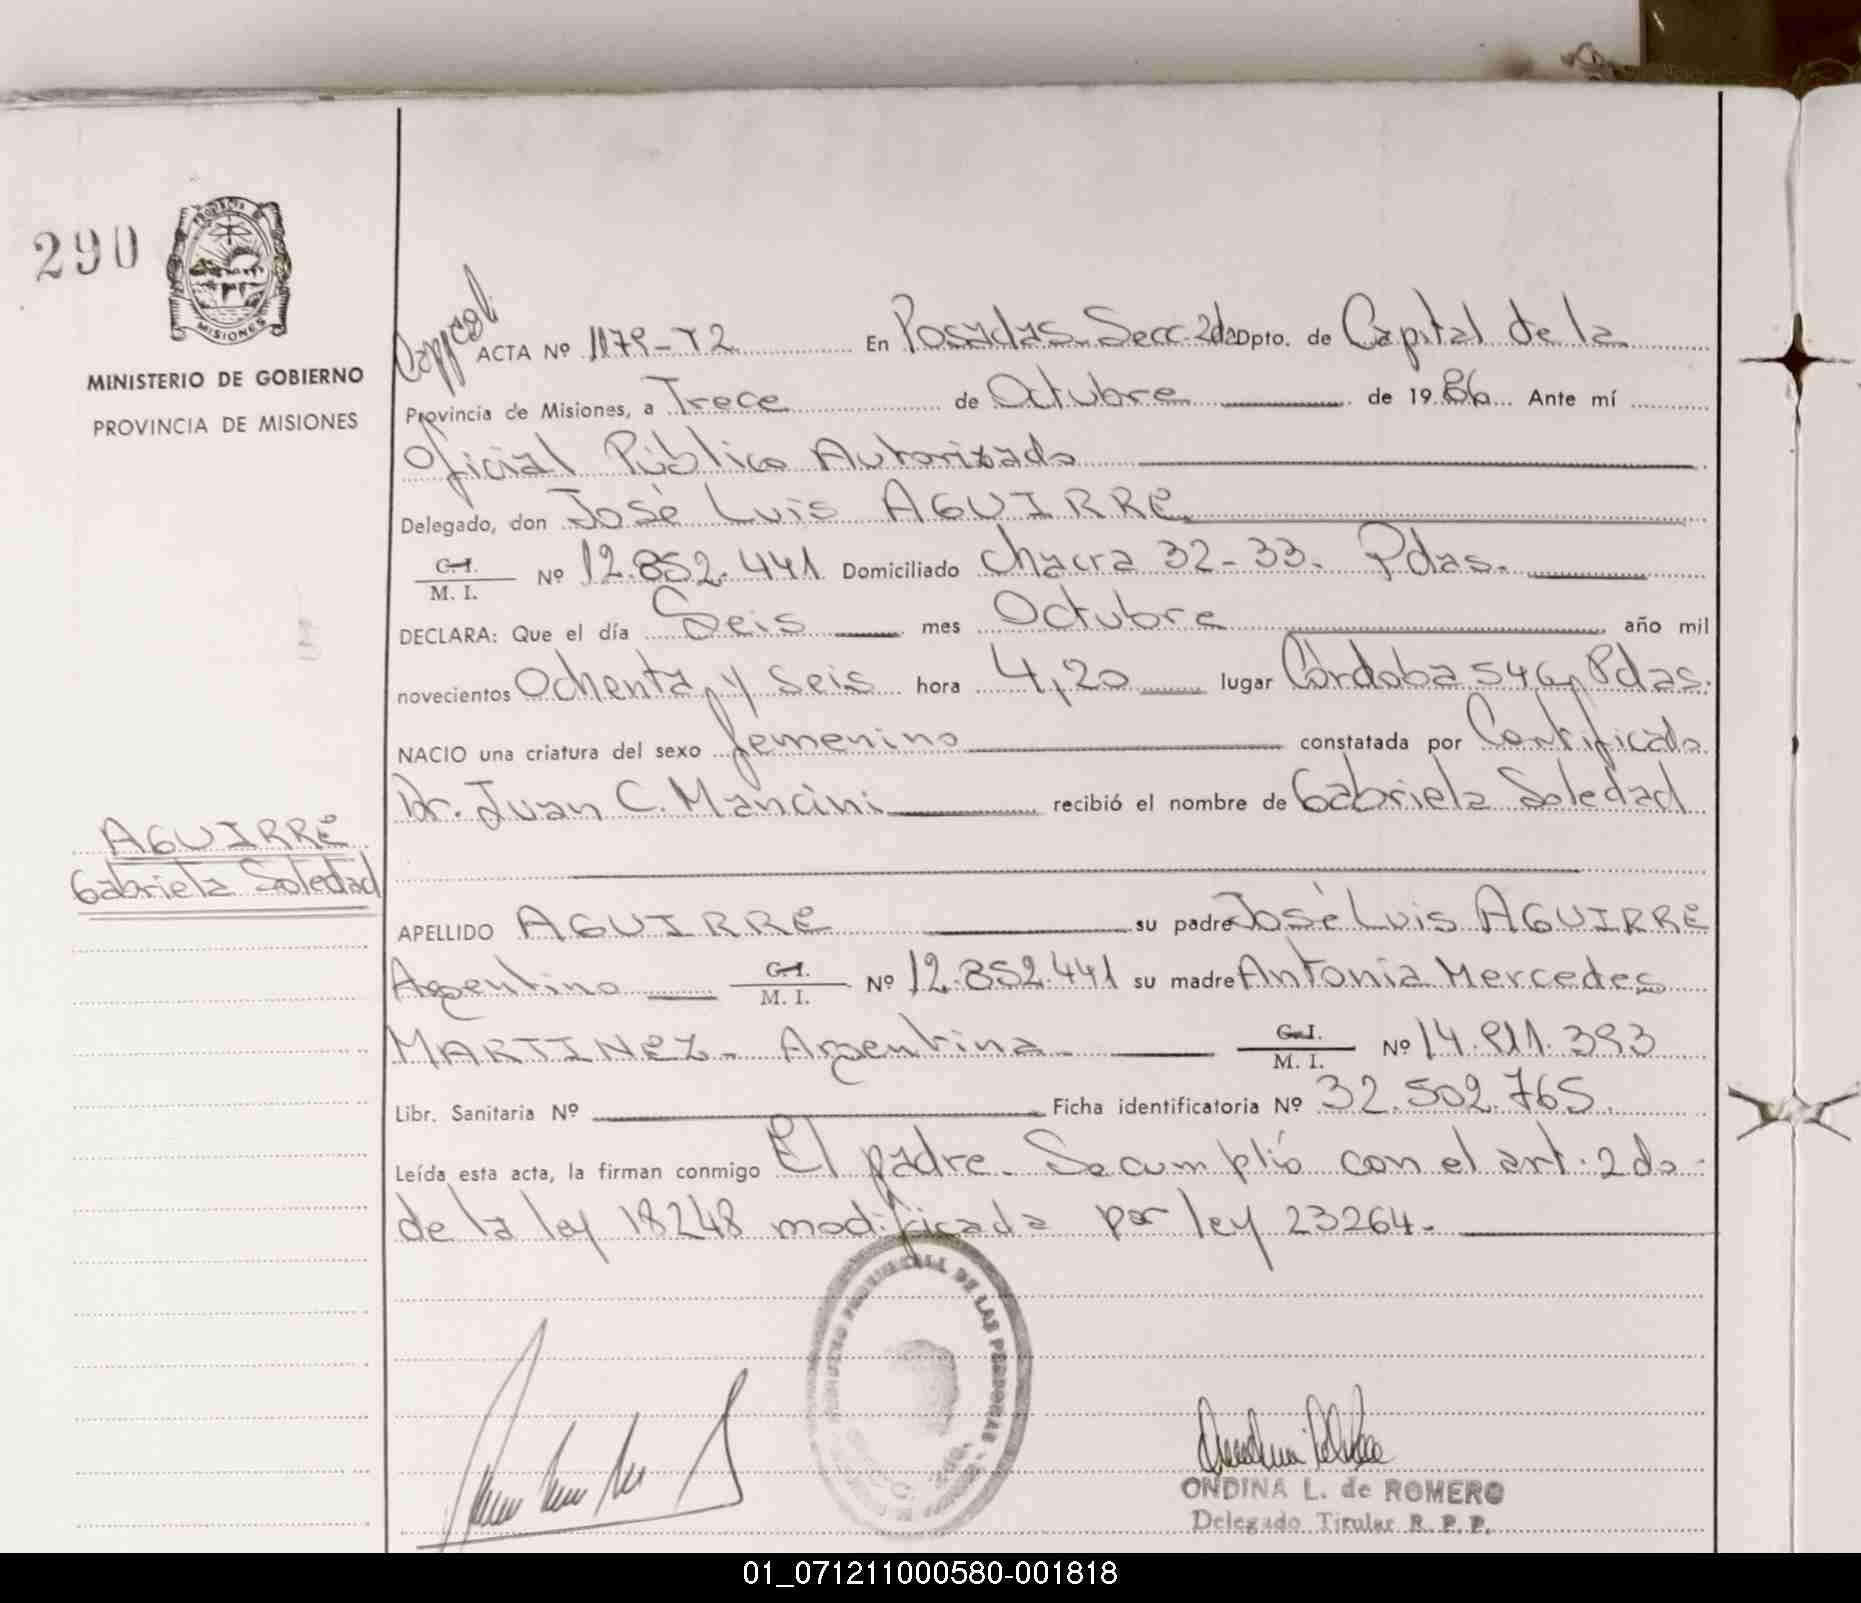 290
PROVINCIA DE
MISIONES
MINISTERIO DE GOBIERNO
PROVINCIA DE MISIONES
AGUIRRE
Gabriela Soledad
ACTA Nº 1179-T2 En Posadas-Secc-2da Dpto. de Capital de la
Provincia de Misiones, a Trece de Octubre de 1986 Ante mí
Oficial Público Autorizado
Delegado, don José Luis AGUIRRE
C.I. M. I. Nº 12.852.441 Domiciliado Chacra 32-33. Pdas.
DECLARA: Que el día Seis mes Octubre año mil
novecientos Ochenta y seis hora 4,20 lugar Córdoba 546, Pdas.
NACIO una criatura del sexo femenino constatada por Certificado
Dr. Juan C. Mancini recibió el nombre de Gabriela Soledad
APELLIDO AGUIRRE su padre José Luis AGUIRRE
Argentino C.I. M. I. Nº 12.852.441 su madre Antonia Mercedes
MARTINEZ- Argentina C.I. M. I. Nº 14.811.393
Libr. Sanitaria Nº Ficha identificatoria Nº 32.502.765
Leída esta acta, la firman conmigo El padre. Se cumplió con el art. 2do.
de la ley 18248 modificada por ley 23264.
PROVINCIAL DE LAS PERSONAS
ONDINA L. de ROMERO
Delegado Titular R. P. P.
01_071211000580-001818